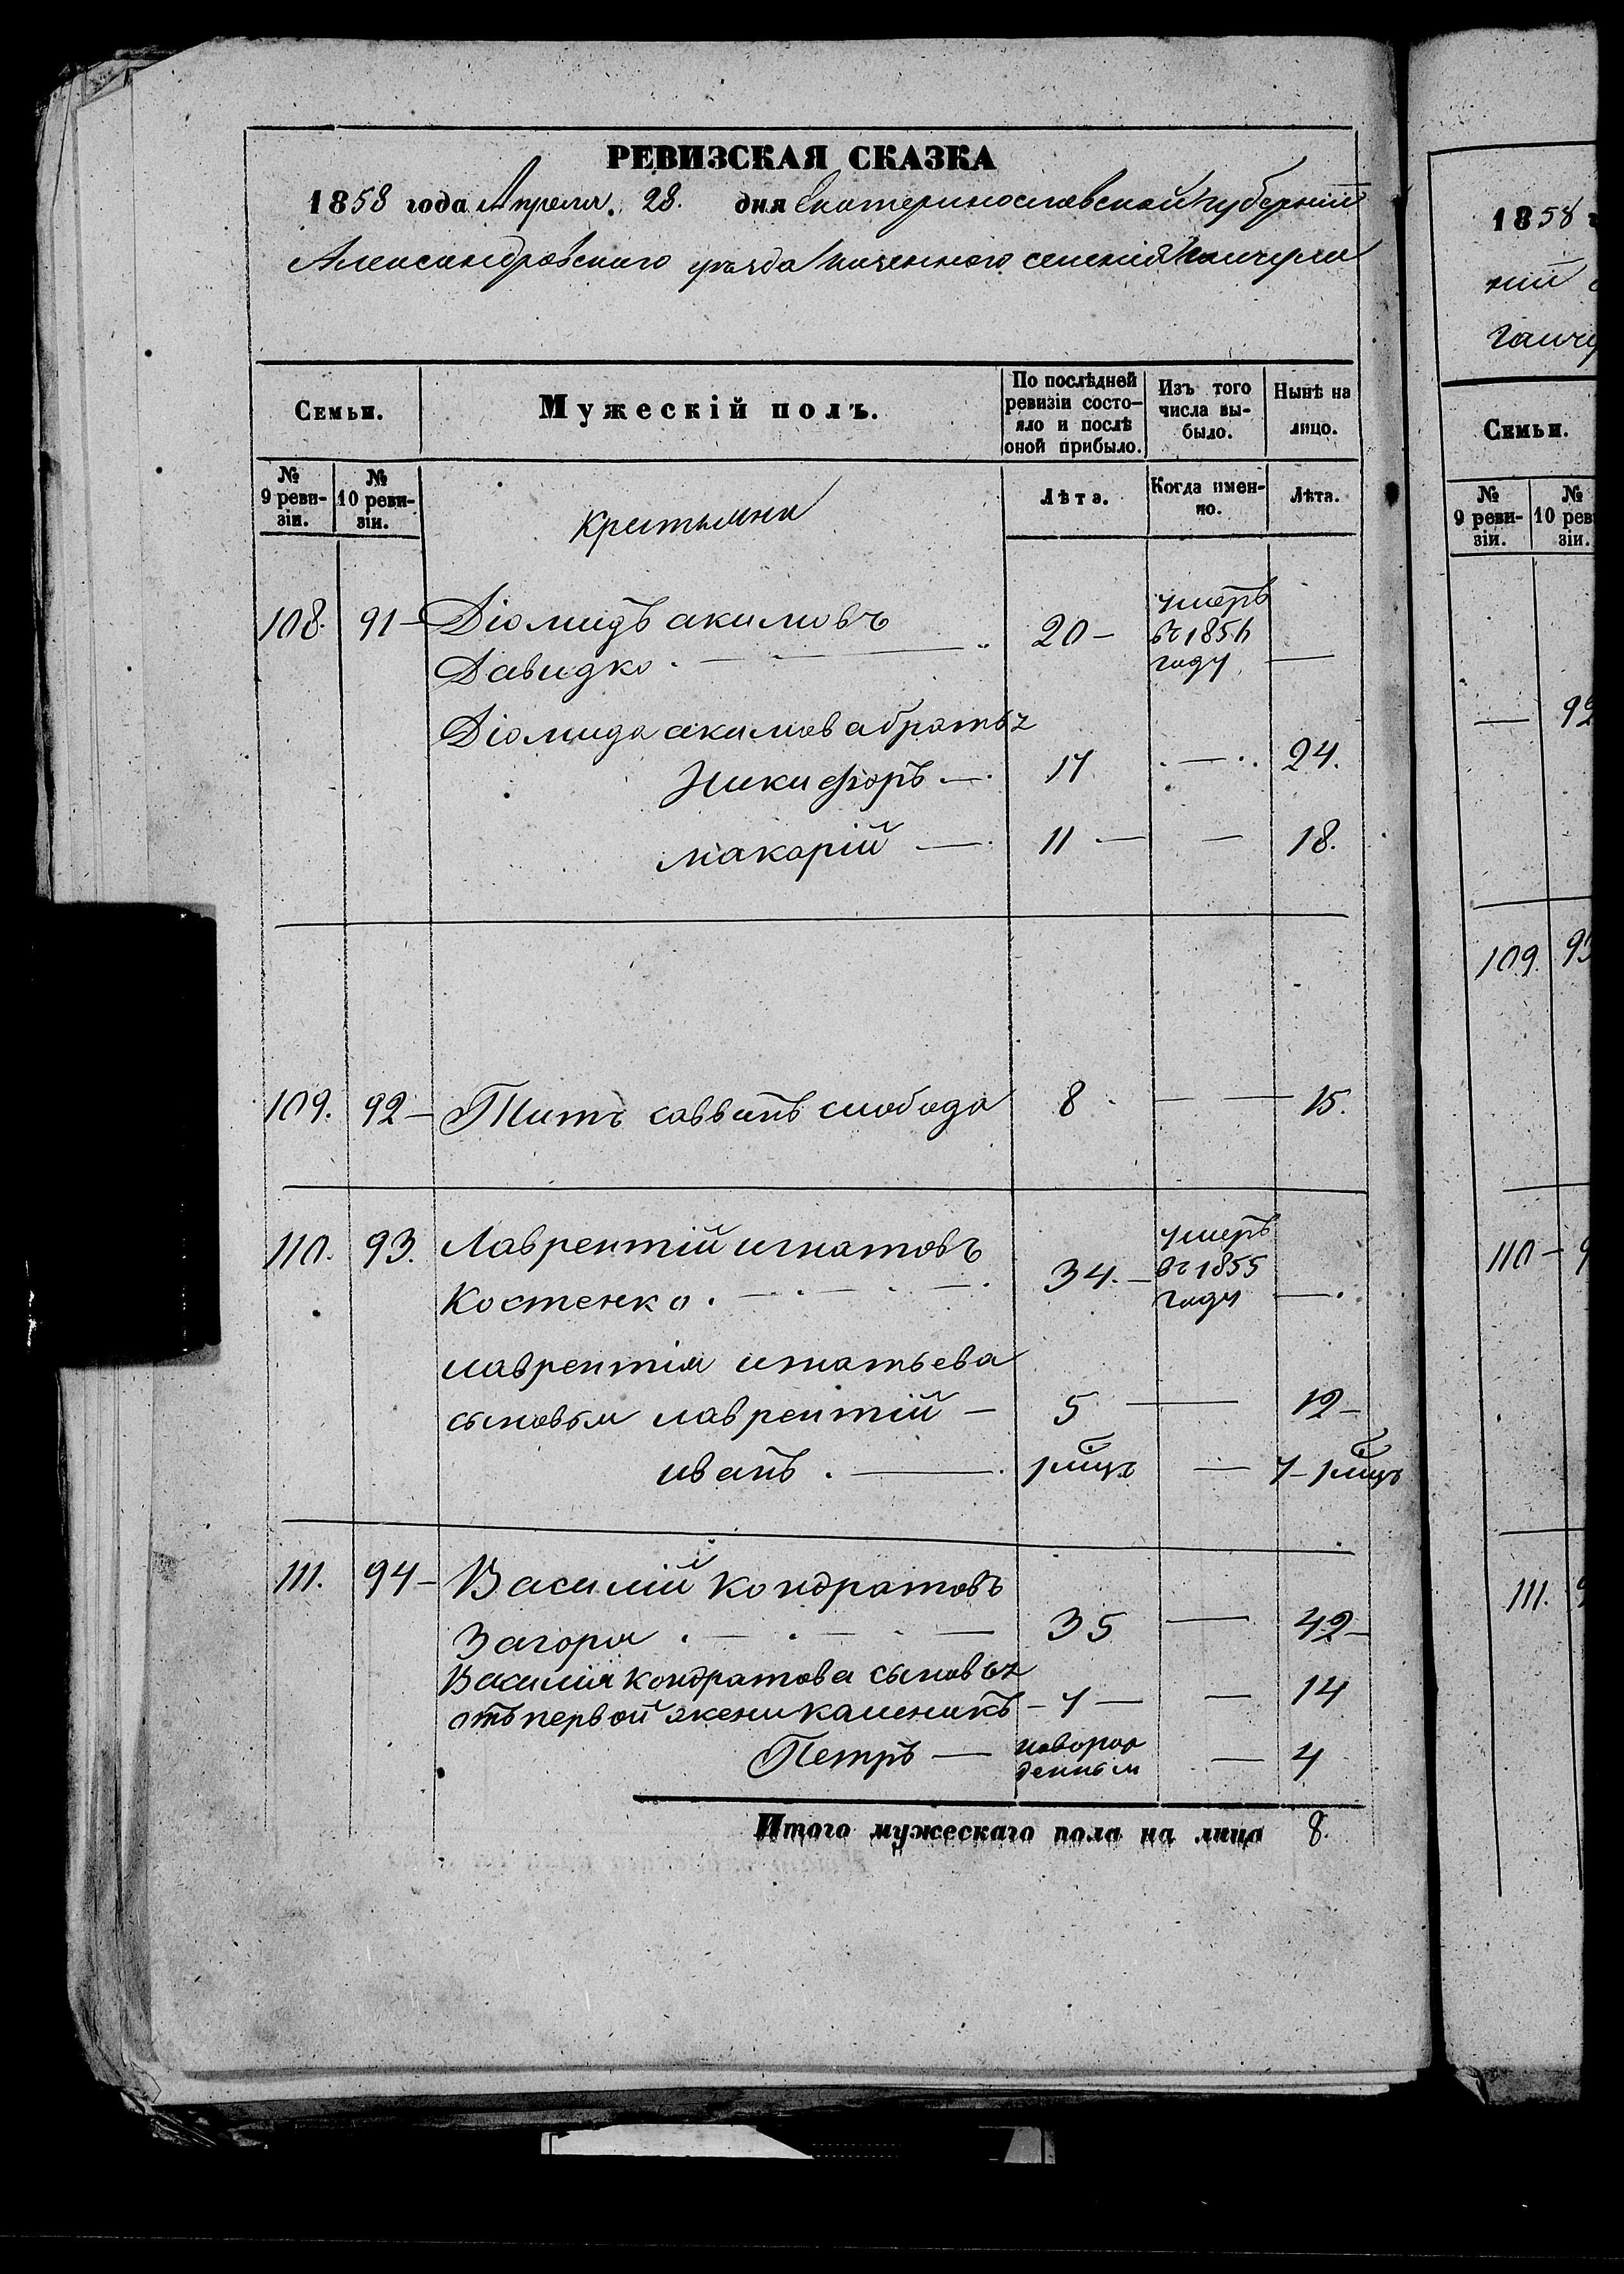 РЕВИЗСКАЯ СКАЗКА
1858 года Апреля 28. дня Екатеринославской губерніи
Александровского уѣзда казенного селенія Гайчула
Семьи.
Мужескій полъ.
По послѣдней ревизіи состо-
яло и послѣ оной прибыло.
Изъ того числа вы-
было.
Нынѣ на лицо.
№ 9 реви-
зіи.
№ 10 реви-
зіи.
Крестьяни
Лѣта.
Когда имен-
но.
Лѣта.
108. 91 – Діомидъ акимовъ
Давидко. 20 – умеръ въ 1856 году —
Діомида акимова братья
Никифоръ — 17 — 24.
макарій — 11 — — 18.
109. 92 – Титъ саввинъ слобода 8 — — 15.
110. 93. Лаврентій игнатовъ
Костенко. 34. – умеръ въ 1855 году —
лаврентія игнатьева
сыновья лаврентій – 5 — 12 –
иванъ. — 1 мцъ — 7 – 1 мцъ
111. 94 – Василій кондратовъ
Загоря. 35 — 42 –
Василія кондратова сыновья
отъ первой жени каленикъ – 7 — — 14
Петръ — новорож
денным — 4
Итого мужескаго пола на лицо 8.
1858
ній
Гайчу
Семьи.
№ 9 реви-
зіи.
№ 10 рев
зіи.
— 92
109. 93
110 –
111.